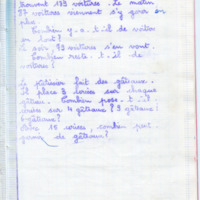 trouvent 179 voitures. Le matin
37 voitures viennent s'y garer en
plus.
Combien y-a-t-il de voitures
en tout?
Le soir, 93 voitures s'en vont.
Combien reste-t-il de
voitures?
Le pâtissier fait des gâteaux.
Il place 3 cerises sur chaque
gâteau. Combien pose-t-il
cerises sur 4 gâteaux? 2 gâteaux?
6 gâteaux?
Avec 18 cerises, combien peut
garnir de gâteaux?